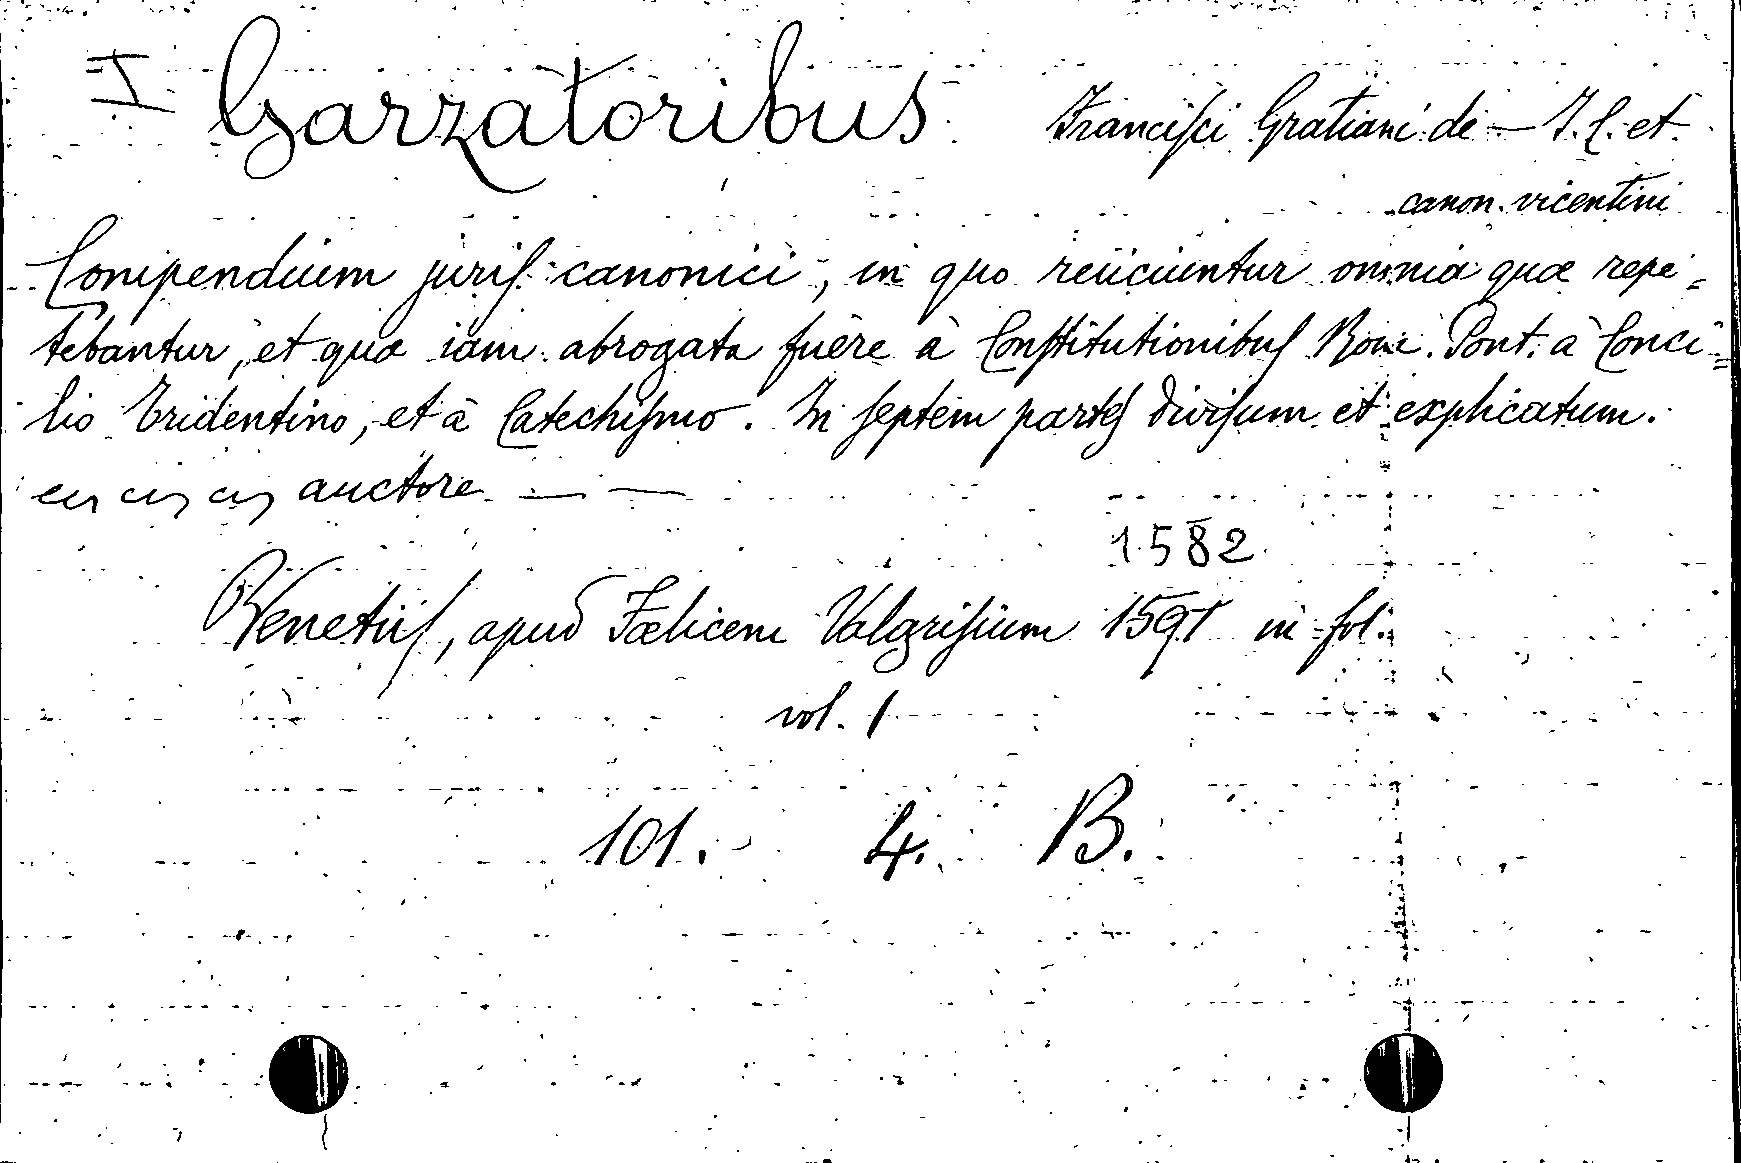 I Garzatoribus Franciſci Gratiani de — I. C. et
canon. vicentini
Compendium juriſ canonici, in quo reiiciuntur omnia quæ repe=
tebantur, et quæ iàm abrogata fuère à Conſtitutionibuſ Rom. Pont. à Conci=
lio Tridentino, et à Catechiſmo. In ſeptem parteſ diviſum et explicatum.
auctore — —
1582
Venetiiſ, apud Fælicem Valgriſium 1591 in fol.
vol. 1
101. 4. B.